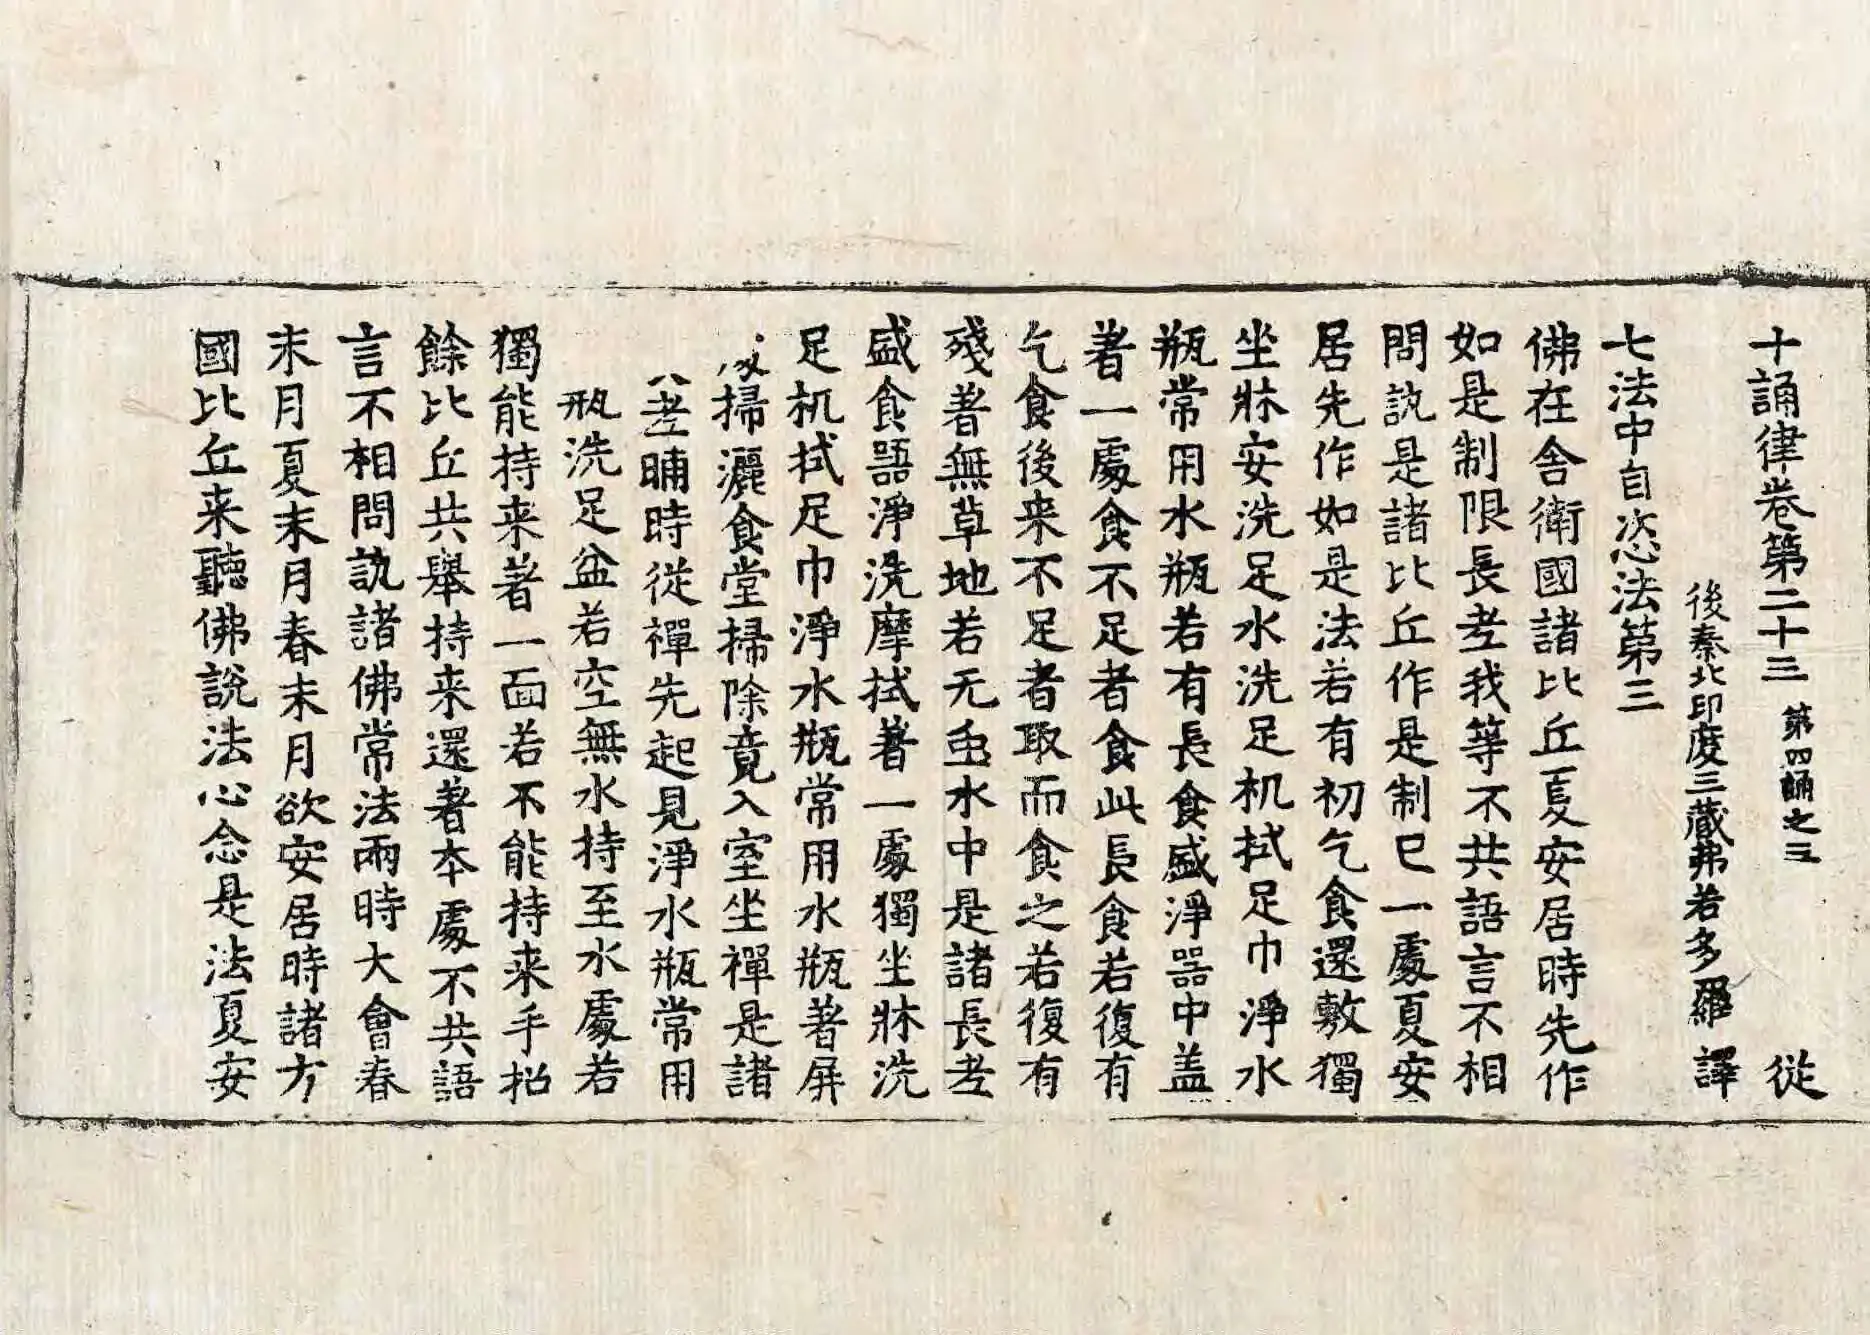 十誦律卷第二十三 第四誦之三 從
後秦北印度三藏弗若多羅 譯
七法中自恣法第三
佛在舍衛國諸比丘夏安居時先作
如是制限長老我等不共語言不相
問訊是諸比丘作是制已一處夏安
居先作如是法若有初乞食還敷獨
坐牀安洗足水洗足机拭足巾淨水
瓶常用水瓶若有長食盛淨器中盖
著一處食不足者食此長食若復有
乞食後来不足者取而食之若復有
殘著無草地若无虫水中是諸長老
盛食器淨洗摩拭著一處獨坐牀洗
足机拭足巾淨水瓶常用水瓶著屏
掃灑食堂掃除竟入室坐禪是諸
老晡時從禪先起見淨水瓶常用
瓶洗足盆若空無水持至水處若
獨能持来著一面若不能持来手招
餘比丘共舉持来還著本處不共語
言不相問訊諸佛常法兩時大會春
末月夏末月春末月欲安居時諸方
國比丘来聽佛說法心念是法夏安